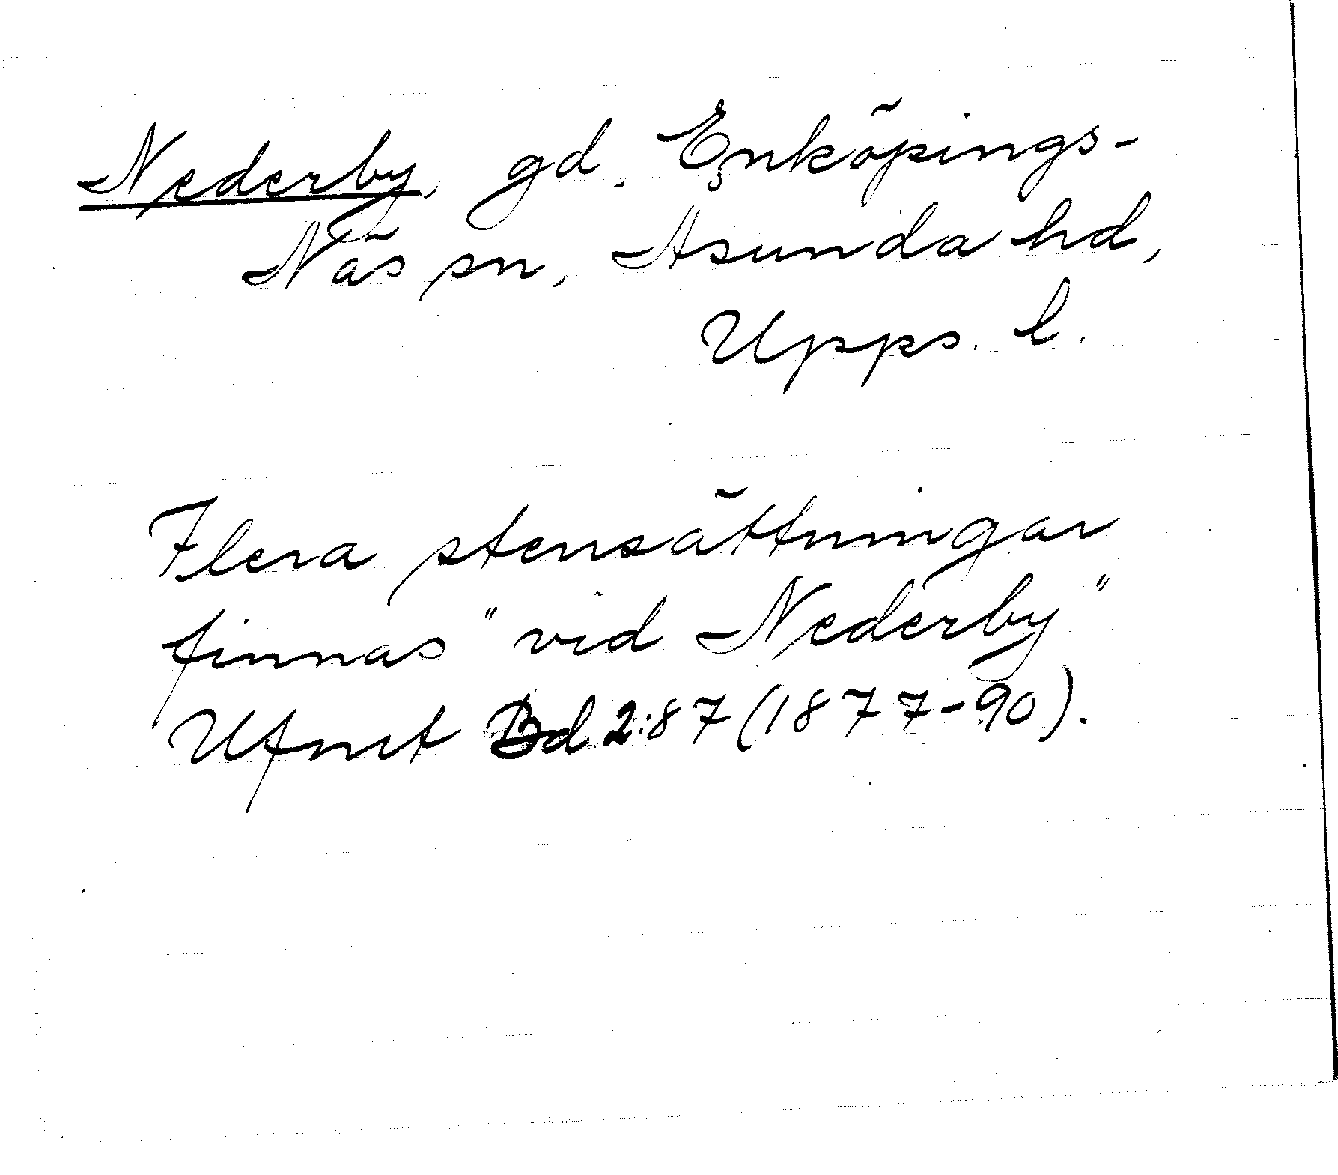 Nederby, gd. Enköpings-
Näs sn, Åsunda hd,
Upps. l.
Flera stensättningar
finnas "vid Nederby"
Ufmt Bd 2:87 (1877-90).